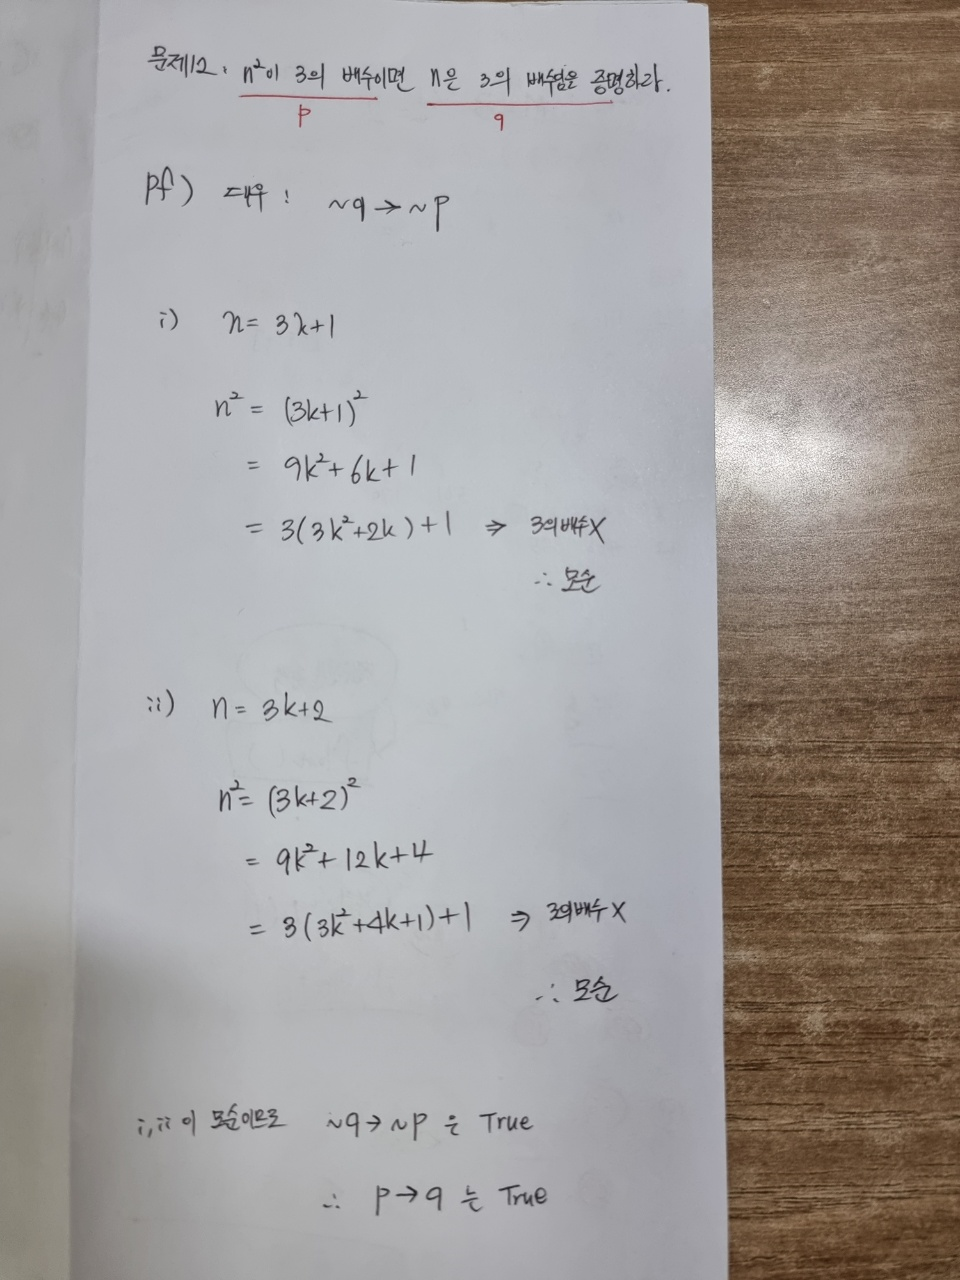 문제12. n²이 3의 배수이면 n은 3의 배수임을 증명하라.
p q
pf) 대우 : ~q → ~p
i) n = 3k+1
n² = (3k+1)²
= 9k²+6k+1
= 3(3k²+2k)+1 ⇒ 3의배수X
∴ 모순
ii) n = 3k+2
n² = (3k+2)²
= 9k²+12k+4
= 3(3k²+4k+1)+1 ⇒ 3의배수X
∴ 모순
i, ii 이 모순이므로 ~q → ~p 는 True
∴ p → q 는 True